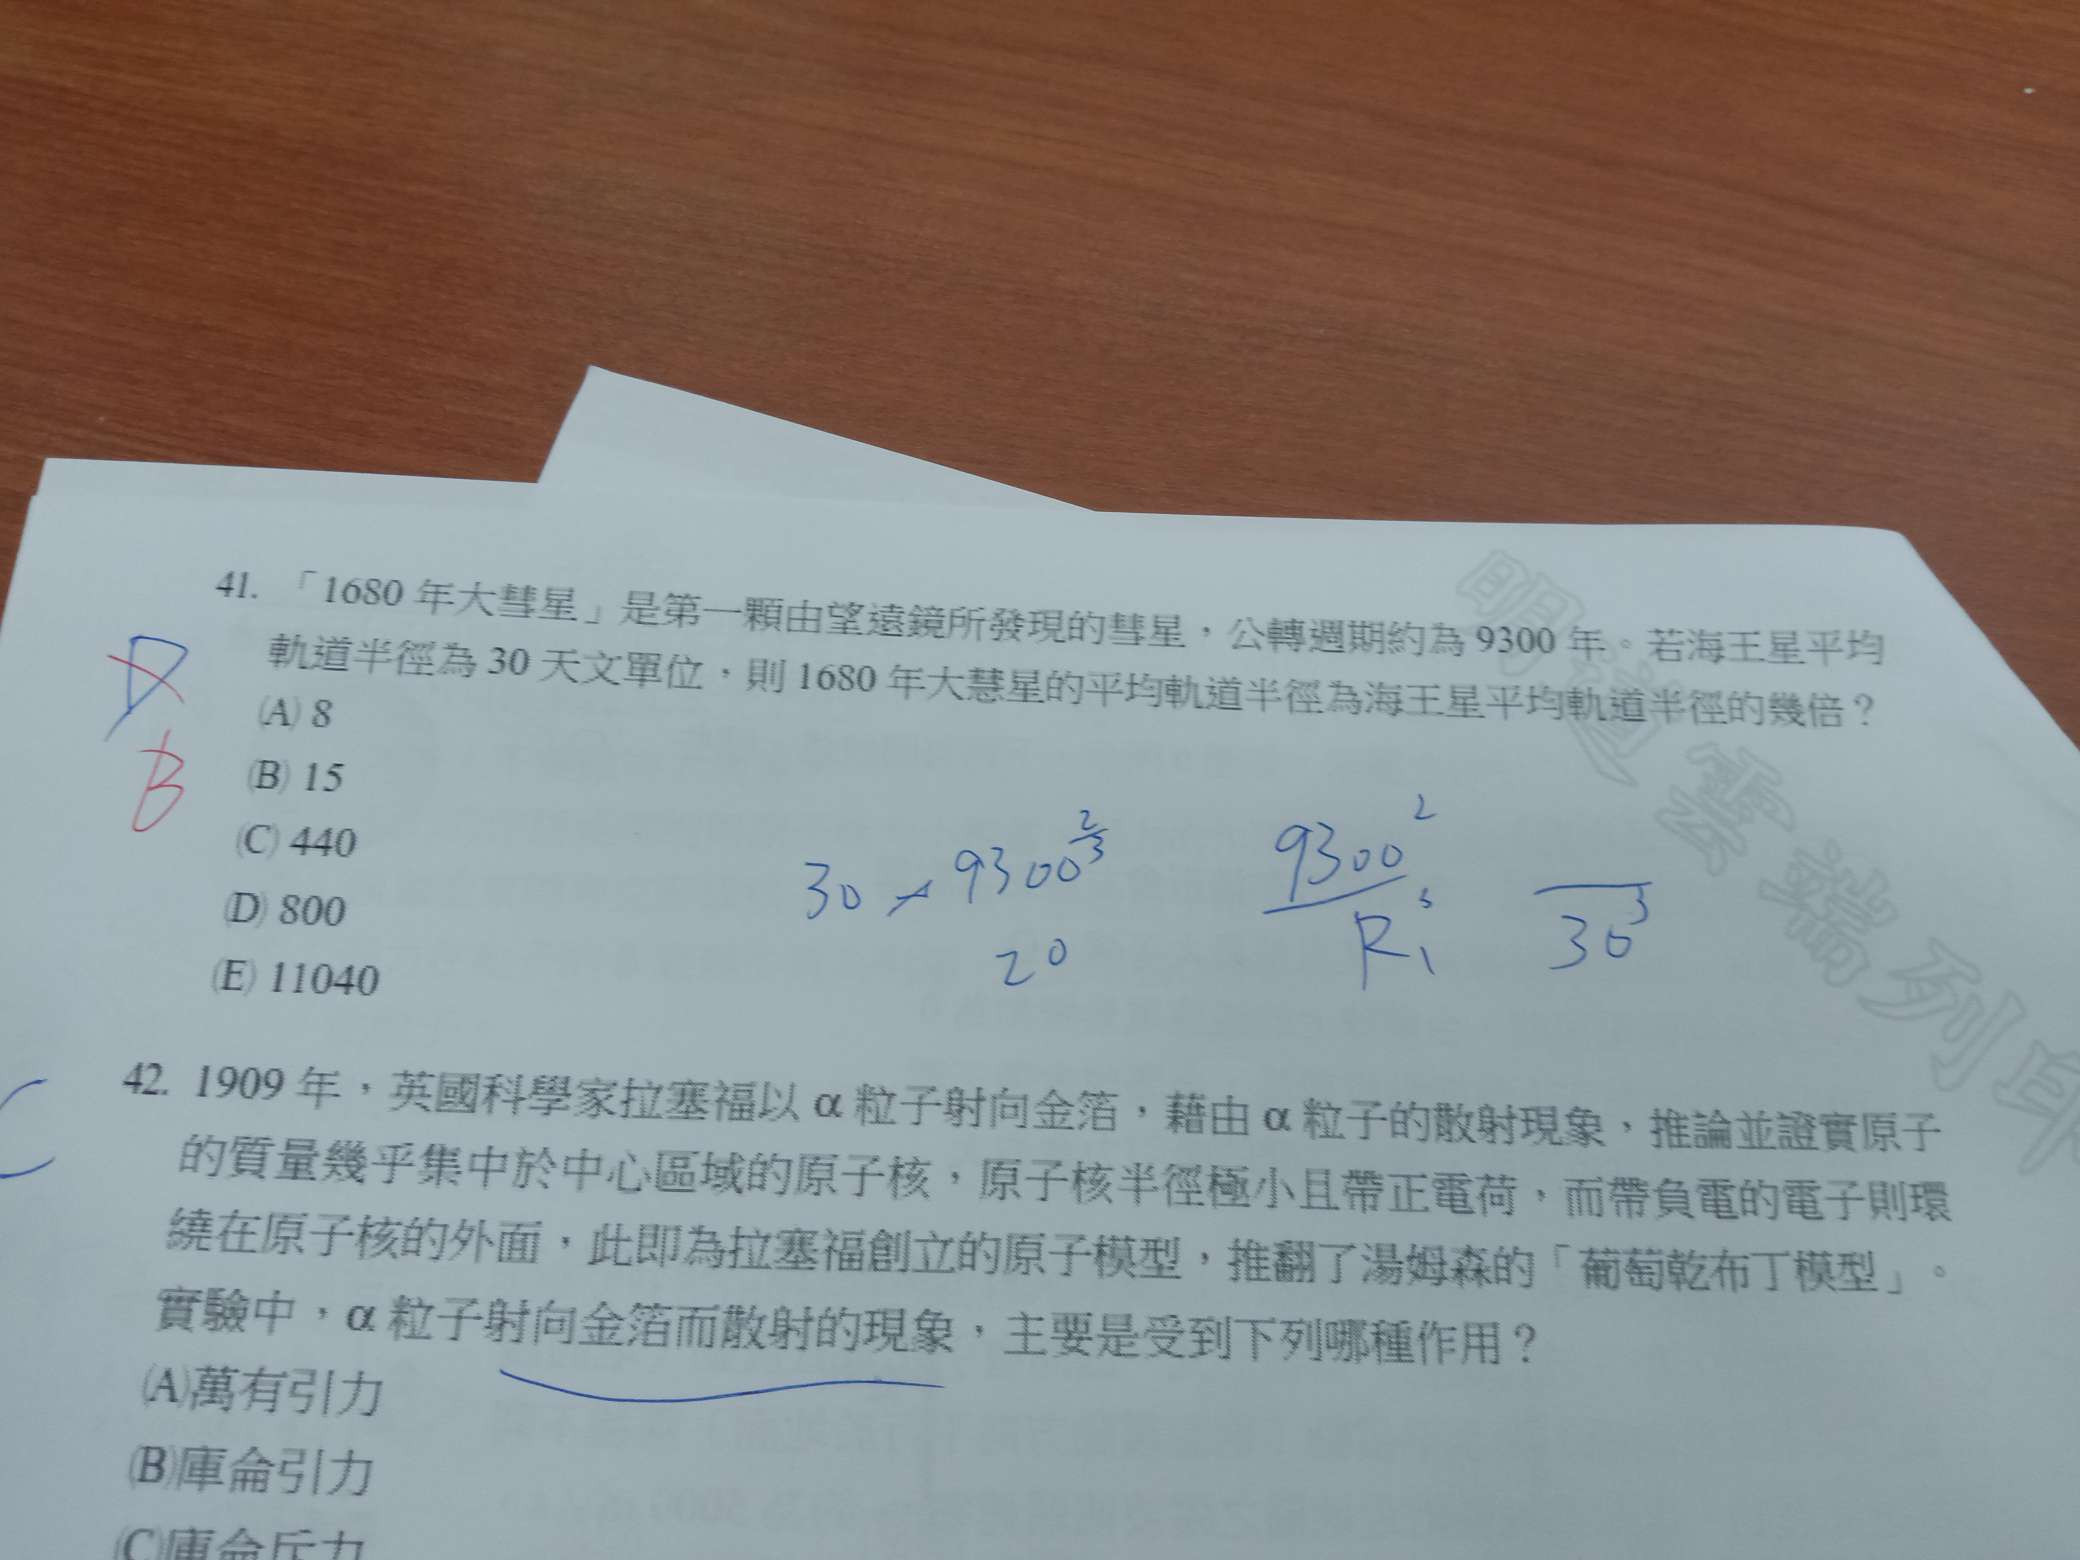 41. 「1680 年大彗星」是第一顆由望遠鏡所發現的彗星，公轉週期約為 9300 年。若海王星平均
軌道半徑為 30 天文單位，則 1680 年大慧星的平均軌道半徑為海王星平均軌道半徑的幾倍？
D
(A) 8
B
(B) 15
(C) 440
(D) 800
(E) 11040
30 × 9300^2/3
20
9300^2
R1^3
30^3
明道雲端列印
C
42. 1909 年，英國科學家拉塞福以 α 粒子射向金箔，藉由 α 粒子的散射現象，推論並證實原子
的質量幾乎集中於中心區域的原子核，原子核半徑極小且帶正電荷，而帶負電的電子則環
繞在原子核的外面，此即為拉塞福創立的原子模型，推翻了湯姆森的「葡萄乾布丁模型」。
實驗中，α 粒子射向金箔而散射的現象，主要是受到下列哪種作用？
(A)萬有引力
(B)庫侖引力
(C)庫侖斥力